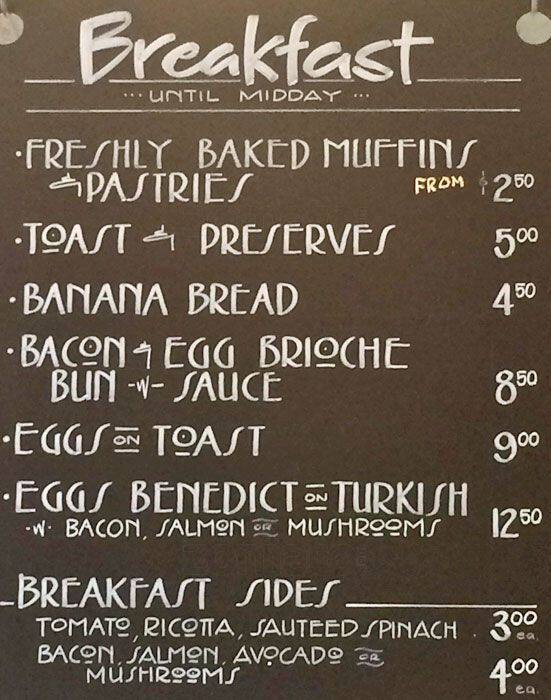 Breakfast
... UNTIL MIDDAY ...
• FRESHLY BAKED MUFFINS
& PASTRIES FROM $2.50
• TOAST & PRESERVES 5.00
• BANANA BREAD 4.50
• BACON & EGG BRIOCHE
BUN -W- SAUCE 8.50
• EGGS ON TOAST 9.00
• EGGS BENEDICT ON TURKISH
-W- BACON, SALMON OR MUSHROOMS 12.50
BREAKFAST SIDES
TOMATO, RICOTTA, SAUTEED SPINACH . 3.00 ea.
BACON, SALMON, AVOCADO OR
MUSHROOMS 4.00 ea.